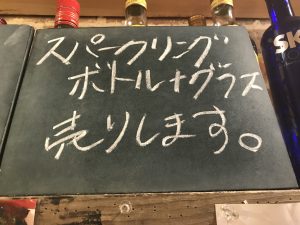 スパークリング
ボトル+グラス
売りします。
SK